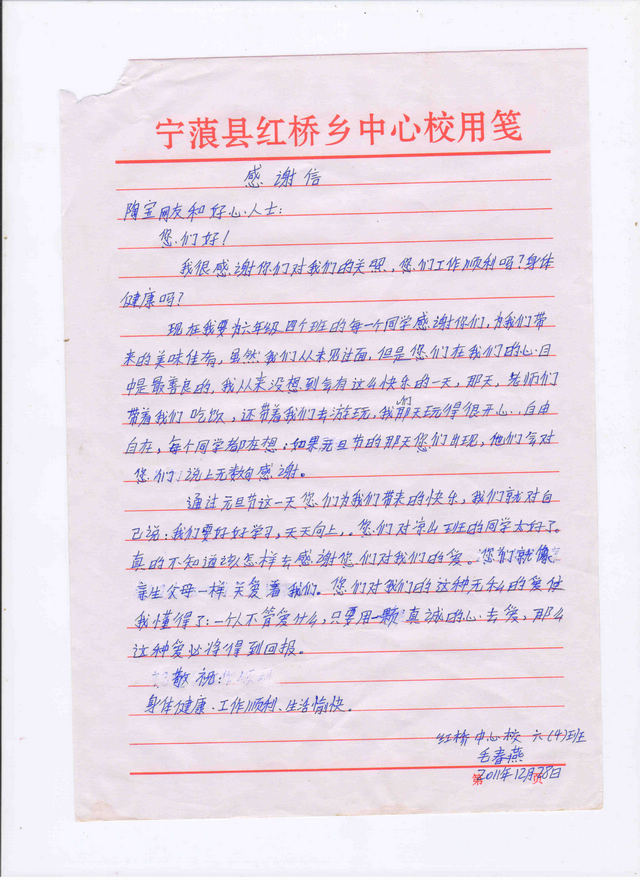 宁蒗县红桥乡中心校用笺
感谢信
陶宝网友和好心人士:
您们好!
我很感谢你们对我们的关照,您们工作顺利吗?身体
健康吗?
现在我要为六年级四个班的每一个同学感谢你们,为我们带
来的美味佳肴,虽然我们从来没见过面,但是您们在我们的心目
中是最善良的,我从来没想到会有这么快乐的一天,那天,老师们
带着我们吃饭,还带着我们去游玩,我们那天玩得很开心、自由
自在,每个同学都在想:如果元旦节的那天您们出现,他们会对
您们说上无数句感谢。
通过元旦节这一天您们为我们带来的快乐,我们就对自
己说:我们要好好学习,天天向上,。您们对凉山班的同学太好了。
真的不知道该怎样去感谢您们对我们的爱。您们就像
亲生父母一样关爱着我们。您们对我们的这种无私的爱使
我懂得了:一个人不管爱什么,只要用一颗真诚的心去爱,那么
这种爱必将得到回报。
敬祝:
身体健康、工作顺利、生活愉快。
红桥中心校 六(4)班
毛春燕
2011年12月28日
第 页